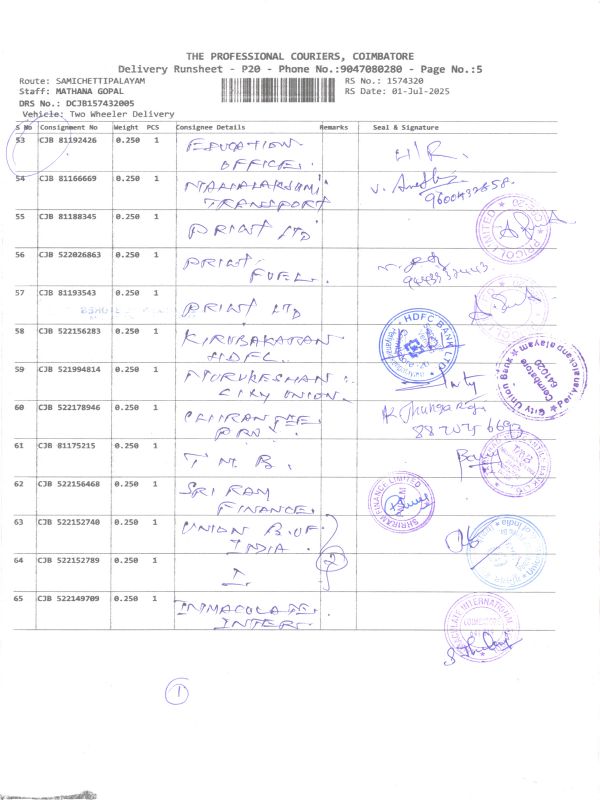 THE PROFESSIONAL COURIERS, COIMBATORE
Delivery Runsheet - P20 - Phone No.:9047080280 - Page No.:5
Route: SAMICHETTIPALAYAM RS No.: 1574320
Staff: MATHANA GOPAL RS Date: 01-Jul-2025
DRS No.: DCJB157432005
Vehicle: Two Wheeler Delivery
S No Consignment No Weight PCS Consignee Details Remarks Seal & Signature
53 CJB 81192426 0.250 1 EDUCATION
OFFICE.
54 CJB 81166669 0.250 1
TRANSPORT
55 CJB 81188345 0.250 1 PRINT LTD
PRICOL LIMITED
56 CJB 522026863 0.250 1 PRINT
FUEL.
57 CJB 81193543 0.250 1 PRINT LTD
58 CJB 522156283 0.250 1 KIRUBAKARAN
HDFC.
HDFC BANK LTD.
59 CJB 521994814 0.250 1 MURUKESHAN
CITY UNION.
City Union Bank
Periyanaickenpalayam
Coimbatore
641020
60 CJB 522178946 0.250 1
61 CJB 81175215 0.250 1 T M B.
62 CJB 522156468 0.250 1 SRI RAM
FINANCE.
SHRIRAM FINANCE LIMITED
63 CJB 522152740 0.250 1 UNION B. OF
INDIA.
2
64 CJB 522152789 0.250 1 I
65 CJB 522149709 0.250 1 IMMACULATE.
INTER.
1